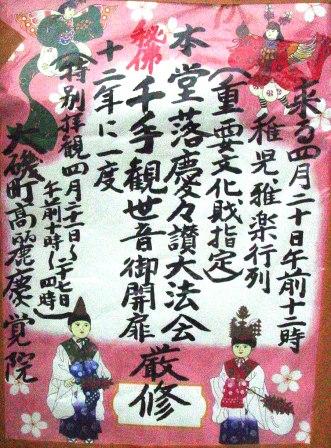 来る四月二十日午前十一時
稚児雅楽行列
(重要文化財指定)
本堂落慶々讃大法会
秘佛 千手観世音御開扉 厳修
十二年に一度
(特別拝観四月二十一日〜二十七日)
午前十時〜四時
大磯町高麗慶覚院